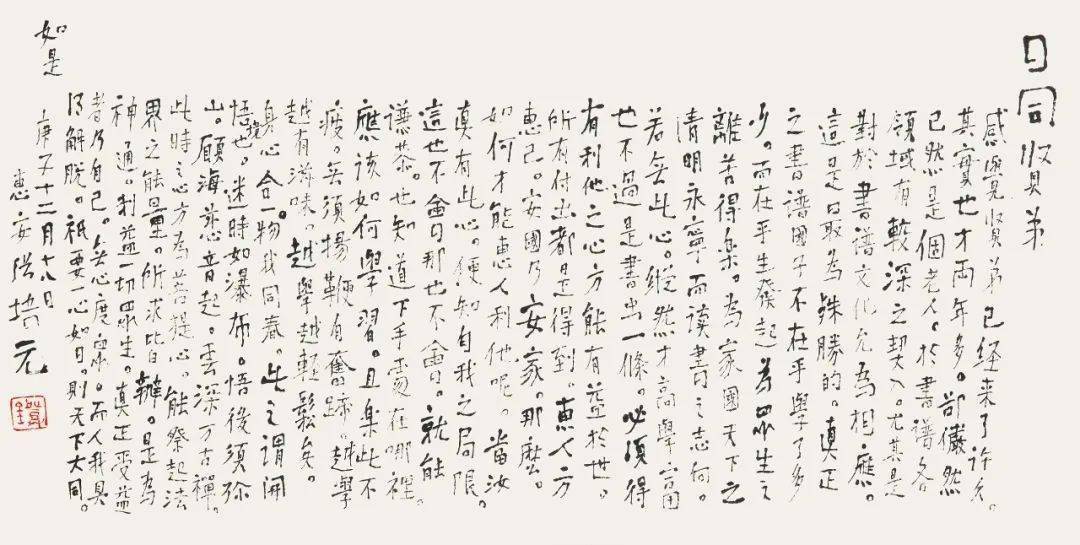 日同賢弟
感覺賢弟已經來了許久。
其實也才兩年多。卻儼然
已然是個老人。於書譜各
領域有較深之契入。尤其是
對於書譜文化尤為相應。
這是最為殊勝的。真正
之書譜國子不在乎學了多
少。而在乎生發起為眾生之
離苦得樂。為家國天下之
清明永寧而讀書之志向。
若無此心。縱然才高學富
也不過是書出一條。必須得
有利他之心方能有益於世。
所有付出都是得到。惠人方
惠己。安國乃安家。那麼
如何才能惠人利他呢。當汝
真有此心。便知自我之局限。
這也不會那也不會。就能
謙恭。也知道下手處在哪裡。
應該如何學習。且樂此不
疲。無須揚鞭自奮蹄。越學
越有滋味。越學越輕鬆矣。
身心合一。物我同春。此之謂開
悟也。迷時如瀑布。悟後須彌
山。願海慈音起。雲深万古禪。
此時之心方為菩提心。能祭起法
界之能量。所求皆辦。是為
神通。利益一切眾生。真正受益
者乃自己。無心度眾。而人我具
得解脫。祇要一心如日。則天下大同。
如是
庚子十二月十八日
惠安 培元